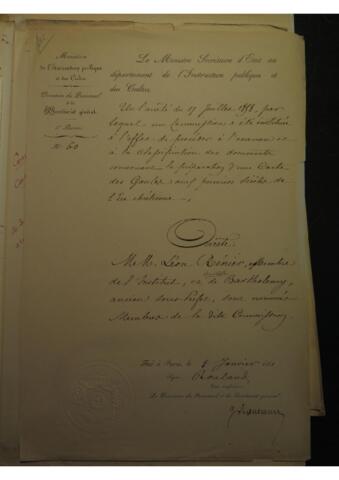 Ministère
de l'Instruction publique
et des Cultes
Division du Personnel
et du
Secrétariat général.
1er Bureau
N° 60
Le Ministre Secrétaire d'Etat au
département de l'Instruction publique et
des Cultes,
Vu l'arrêté du 17 Juillet 1858, par
lequel une Commission a été instituée
à l'effet de procéder à l'examen et
à la des documents
concernant la préparation d'une Carte
des Gaules aux premiers siècles de
l'Ere chrétienne.
Arrête:
M.M. Léon Rénier, Membre
de l'Institut, et de Barthélemy,
ancien sous-Préfet, sont nommés
Membres de la dite Commission.
Fait à Paris, le Janvier
Signé Rouland
Pour ampliation:
Le Directeur du Personnel et du Secrétariat général,